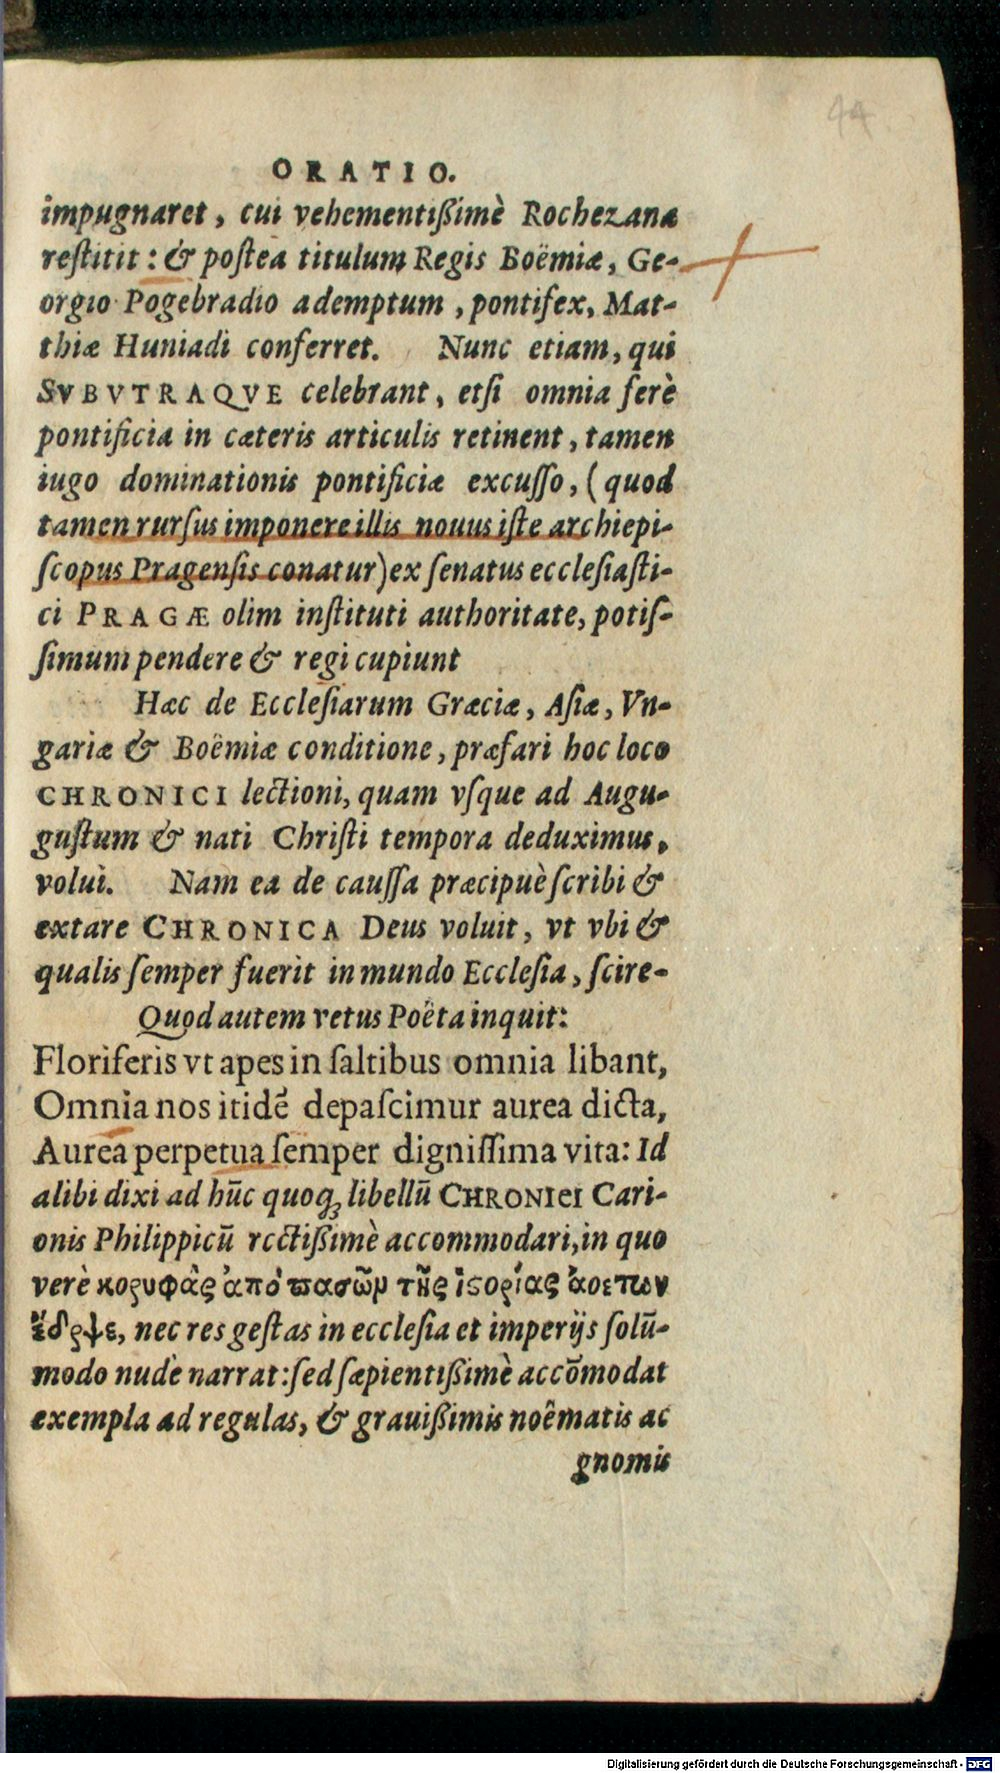 44
ORATIO.
impugnaret, cui vehementißimè Rochezana
reſtitit: & poſtea titulum Regis Boëmiæ, Ge-
orgio Pogebradio ademptum, pontifex, Mat-
thiæ Huniadi conferret. Nunc etiam, qui
SVBVTRAQVE celebrant, etſi omnia ferè
pontificia in cæteris articulis retinent, tamen
iugo dominationis pontificiæ excuſſo, (quod
tamen rurſus imponere illis nouus iſte archiepi-
ſcopus Pragenſis conatur) ex ſenatus eccleſiaſti-
ci PRAGÆ olim inſtituti authoritate, potiſ-
ſimum pendere & regi cupiunt
Hæc de Eccleſiarum Græciæ, Aſiæ, Vn-
gariæ & Boëmiæ conditione, præfari hoc loco
CHRONICI lectioni, quam vſque ad Augu-
guſtum & nati Chriſti tempora deduximus,
volui. Nam ea de cauſſa præcipuè ſcribi &
extare CHRONICA Deus voluit, vt vbi &
qualis ſemper fuerit in mundo Eccleſia, ſcire-
Quod autem vetus Poëta inquit:
Floriferis vt apes in ſaltibus omnia libant,
Omnia nos itidē depaſcimur aurea dicta,
Aurea perpetua ſemper digniſſima vita: Id
alibi dixi ad hūc quoq; libellū CHRONIcI Cari-
onis Philippicū rcctißimè accommodari, in quo
verè κορυφὰς ἀπὸ πασῶμ τῆς ἱϛορίας ἀρετων
ἔδρψε, nec res geſtas in eccleſia et imperijs ſolū-
modo nudè narrat: ſed ſapientißimè accōmodat
exempla ad regulas, & grauißimis noêmatis ac
gnomis
Digitalisierung gefördert durch die Deutsche Forschungsgemeinschaft - DFG